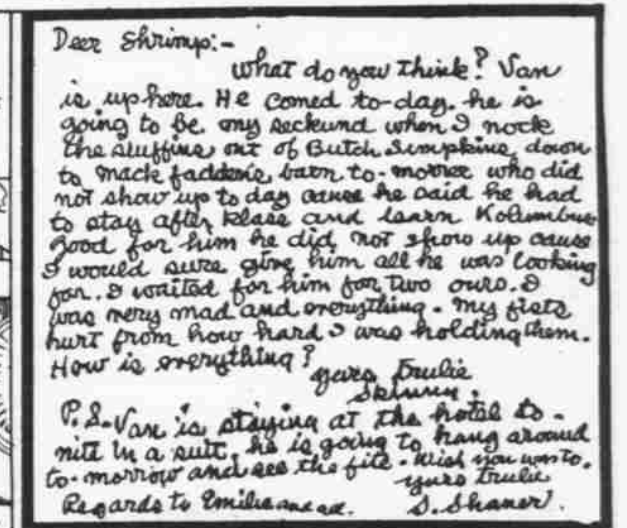 Deer Shrimp:-
What do you think? Van
is up here. He comed to-day. he is
going to be my seckund when I nock
the stuffins out of Butch Simpkins down
to Mack faddens barn to-morrer who did
not show up to day cause he said he had
to stay after klass and learn Kolumbus
good for him he did not show up cause
I would sure give him all he was looking
for. I waited for him for two ours. I
was very mad and everything. My fists
hurt from how hard I was holding them.
How is everything?
yurs trulie
Skinny.
P.S. Van is staying at the hotel to-
nite in a suit. he is going to hang around
to-morrow and see the fite. Wish you was to.
yurs trulie
Regards to Emilie and ed. S. Shaner.